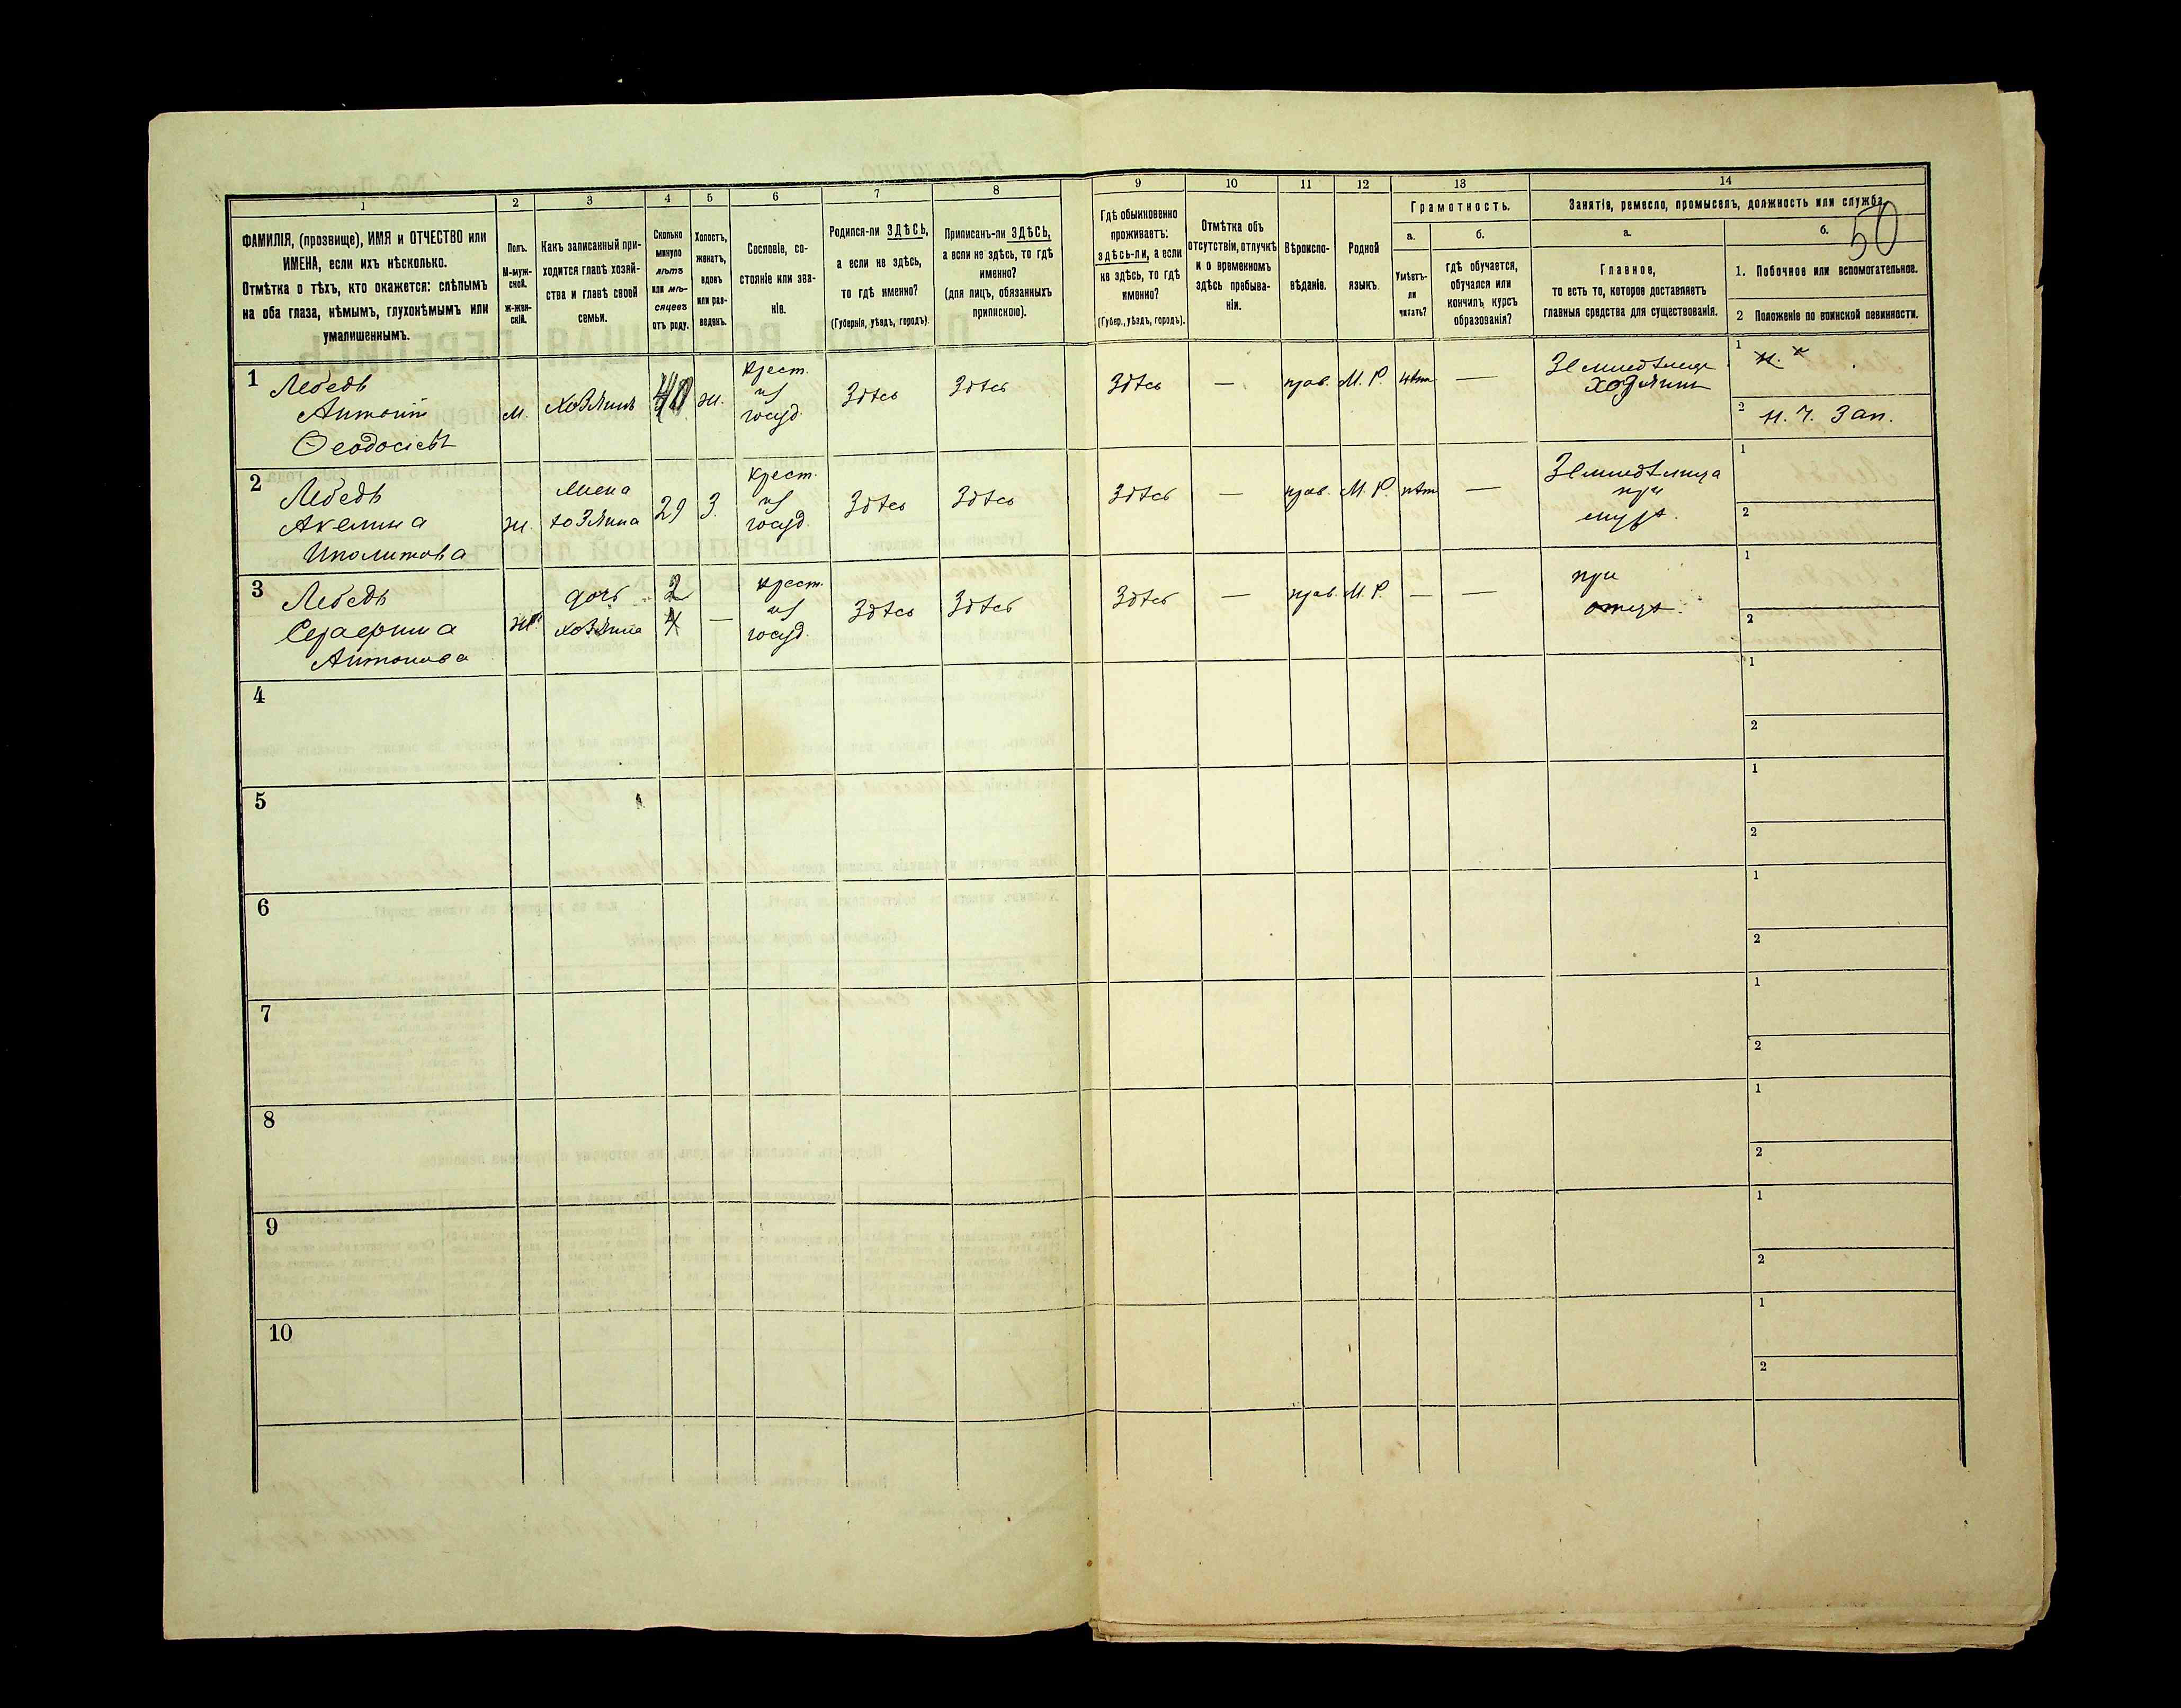 50
1
2
3
4
5
6
7
8
9
10
11
12
13
14
ФАМИЛІЯ, (прозвище), ИМЯ и ОТЧЕСТВО или
ИМЕНА, если ихъ нѣсколько.
Отмѣтка о тѣхъ, кто окажется: слѣпымъ
на оба глаза, нѣмымъ, глухонѣмымъ или
умалишеннымъ.
Полъ.
М-муж-
ской.
Ж-жен-
скій.
Какъ записанный при-
ходится главѣ хозяй-
ства и главѣ своей
семьи.
Сколько
минуло
лѣтъ
или мѣ-
сяцевъ
отъ роду.
Холостъ,
женатъ,
вдовъ
или раз-
веденъ.
Сословіе, со-
стояніе или зва-
ніе.
Родился-ли ЗДѢСЬ,
а если не здѣсь,
то гдѣ именно?
(Губернія, уѣздъ, городъ).
Приписанъ-ли ЗДѢСЬ,
а если не здѣсь, то гдѣ
именно?
(для лицъ, обязанныхъ
припискою).
Гдѣ обыкновенно
проживаетъ:
здѣсь-ли, а если
не здѣсь, то гдѣ
именно?
(Губер., уѣздъ, городъ).
Отмѣтка объ
отсутствіи, отлучкѣ
и о временномъ
здѣсь пребыва-
ніи.
Вѣроиспо-
вѣданіе.
Родной
языкъ.
Грамотность.
а.
Умѣетъ-
ли
читать?
б.
гдѣ обучается,
обучался или
кончилъ курсъ
образованія?
Занятіе, ремесло, промыселъ, должность или служба.
а.
Главное,
то есть то, которое доставляетъ
главныя средства для существованія.
б.
1. Побочное или вспомогательное.
2 Положеніе по воинской повинности.
1
Лебедь
Антоній
Ѳеодосіевъ
м.
хозяинъ
40
ж.
крест.
из
госуд.
Здѣсь
Здѣсь
Здѣсь
—
прав.
М. Р.
нѣт
—
хозяинъ
1
2
н. ч. Зап.
2
Лебедь
Акелина
Иполитова
ж.
жена
хозяина
29
З.
крест.
из
госуд.
Здѣсь
Здѣсь
Здѣсь
—
прав.
М. Р.
нѣт
—
при
мужѣ.
1
2
3
Лебедь
Серафима
Антонова
ж.
дочь
хозяина
2
—
крест.
из
госуд.
Здѣсь
Здѣсь
Здѣсь
—
прав.
М. Р.
—
—
при
отцѣ.
1
2
4
1
2
5
1
2
6
1
2
7
1
2
8
1
2
9
1
2
10
1
2